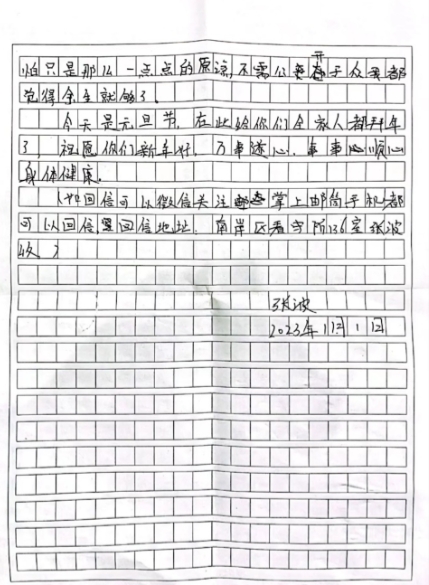 怕只是那么一点点的原谅,不需公开在于众我都
觉得余生就够了。
今天是元旦节,在此给你们全家人都拜年
了 祝愿你们新年好,万事遂心,事事顺心
身体健康。
回信可以微信关注 掌上邮筒手机都
可以回信 回信地址:南岸区看守所136室张波
收)
张波
2023年1月1日